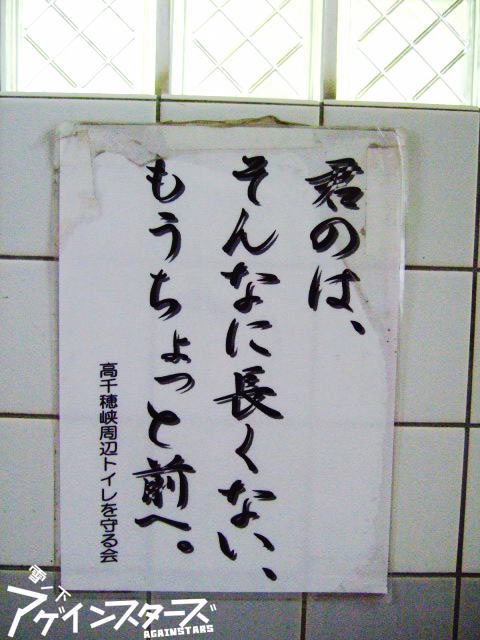 君のは、
そんなに長くない、
もうちょっと前へ。
高千穂峡周辺トイレを守る会
雪下
アゲインスターズ
AGAINSTARS